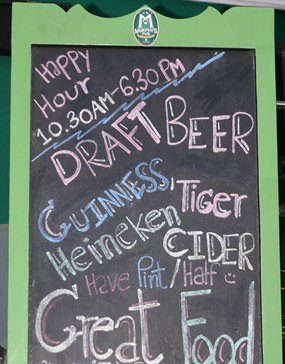 MURPHY'S
HAPPY
HOUR
10.30AM-6.30PM
DRAFT BEER
GUINNESS, TIGER
Heineken CIDER
Have Pint/Half
Great Food